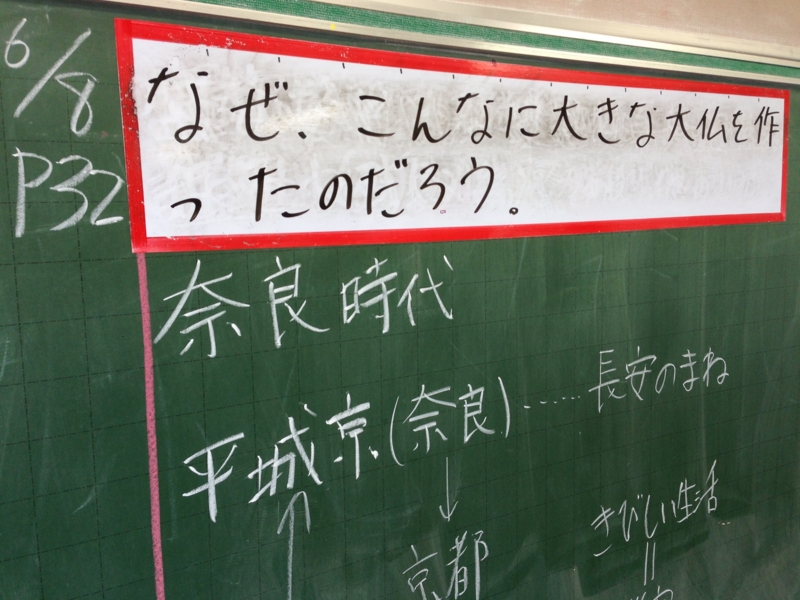 6/8
P32
なぜ、こんなに大きな大仏を作
ったのだろう。
奈良時代
平城京(奈良)……長安のまね
↑
↓
京都
きびしい生活
||